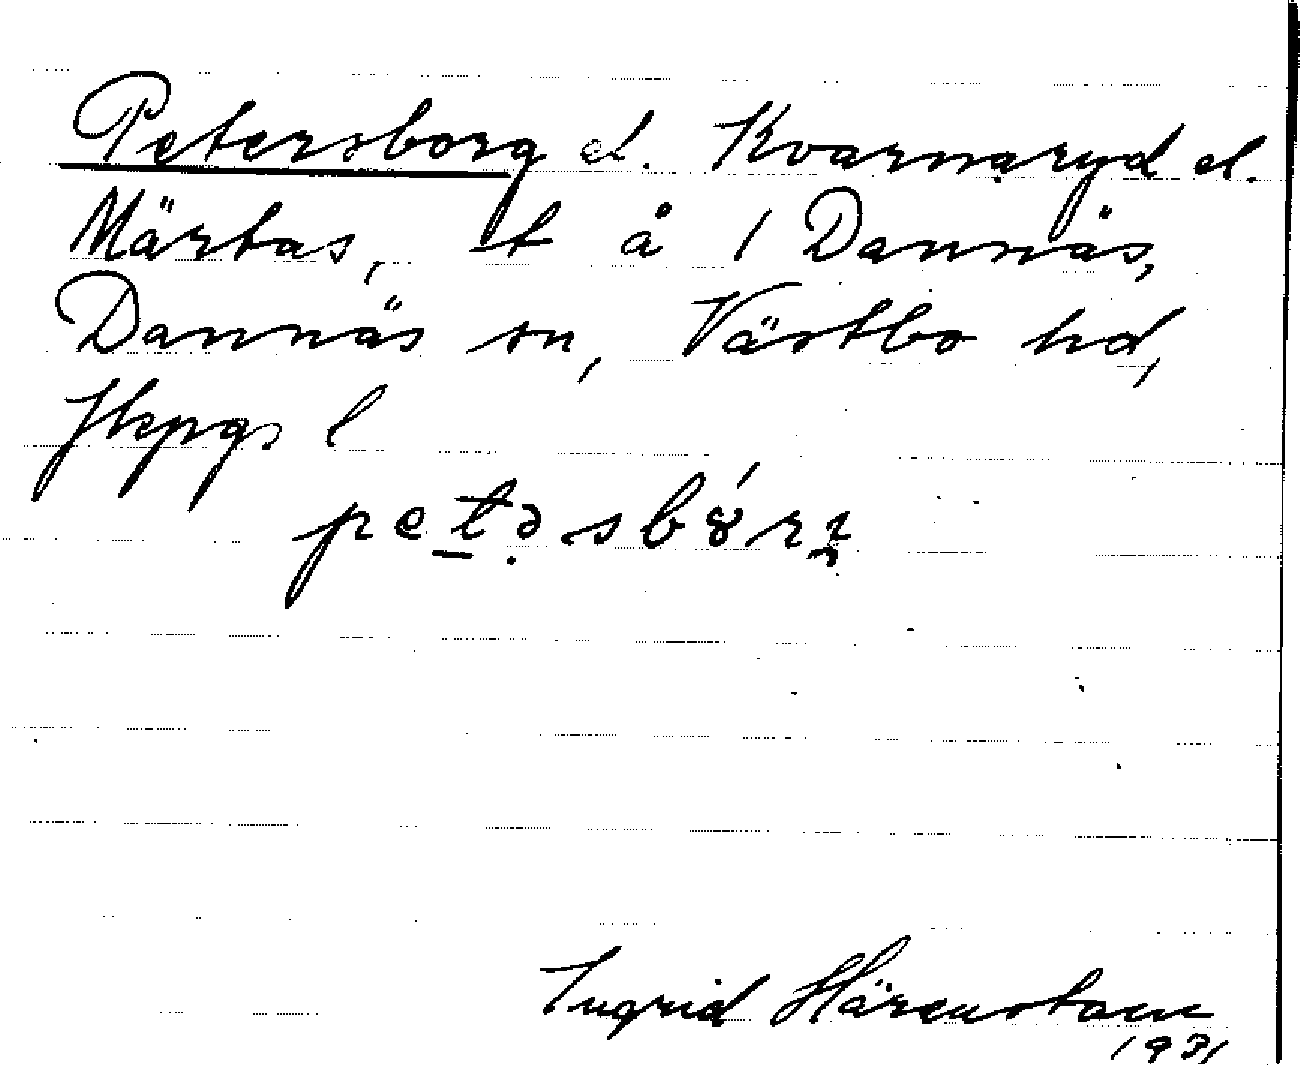 Petersborg el. Kvarnaryd el.
Märtas, t å 1 Dannäs,
Dannäs sn, Västbo hd,
Jkpgs l
Ingrid Härenstam
1931